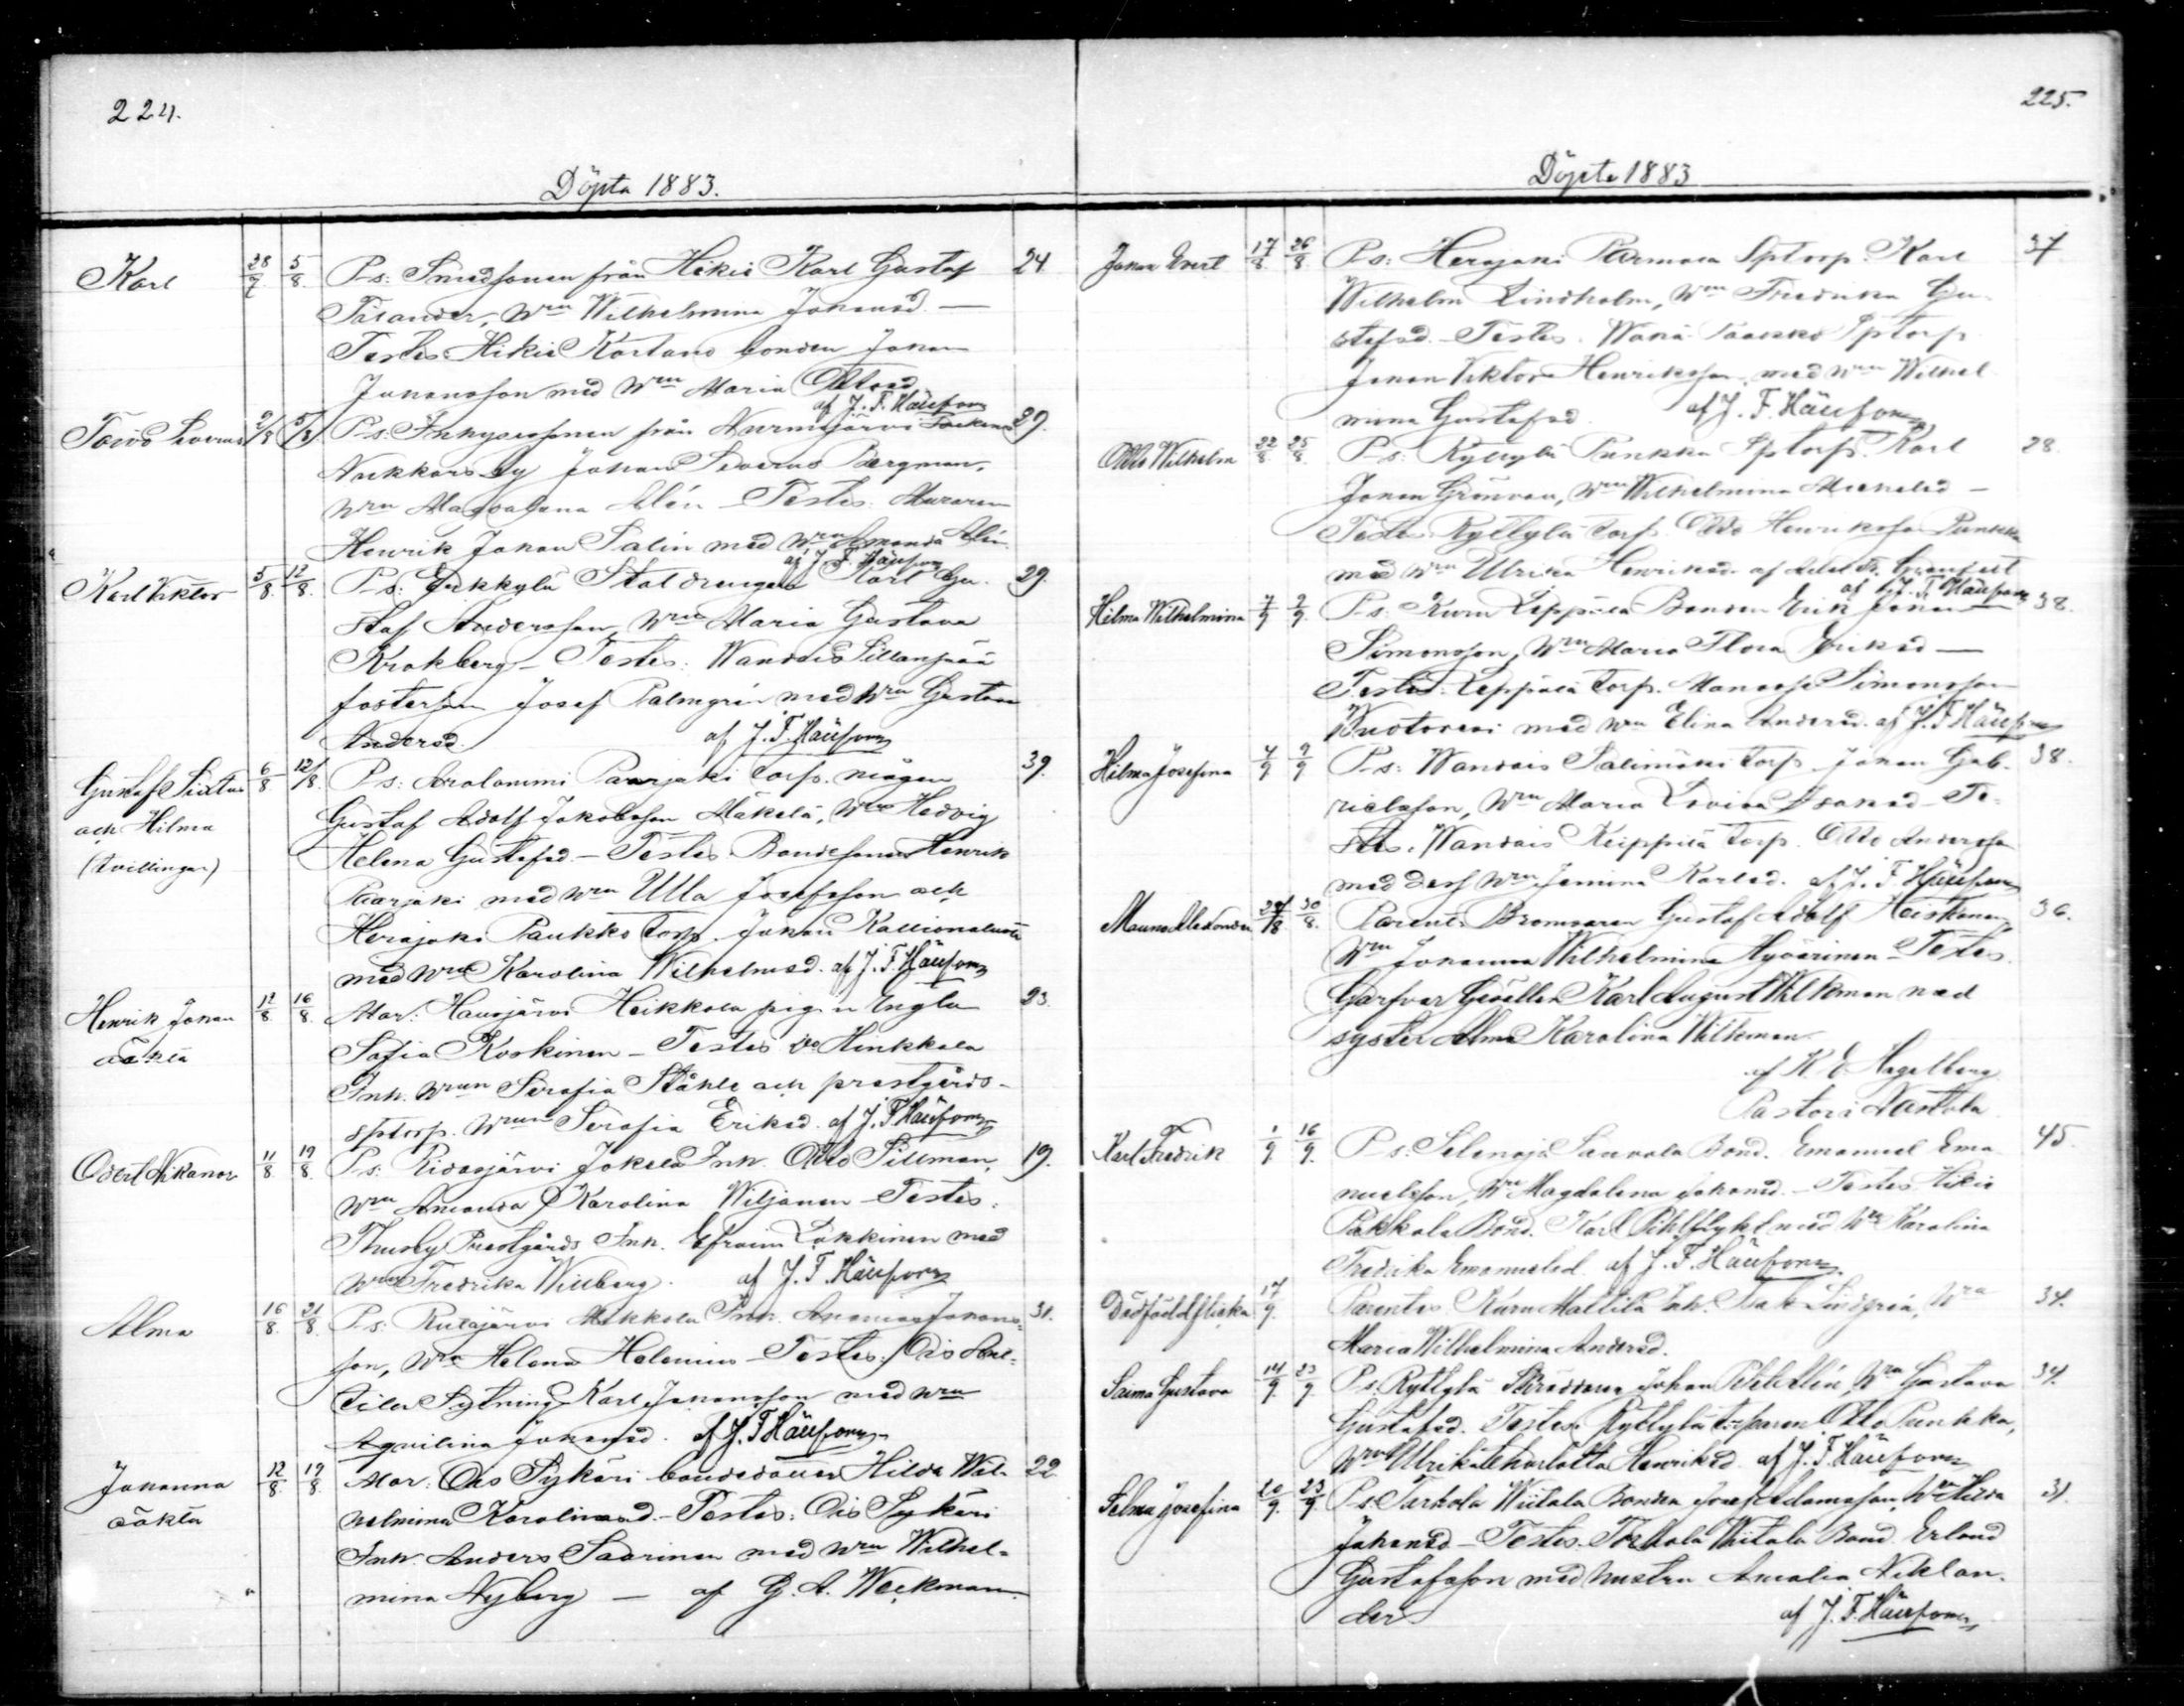 224.
Döpta 1883.
Karl 28/7 5/8 P-s: Smedsonen från Hikiä Karl Gustaf 24
Wrn Wilhelmina Johansd. —
Testes: Hikiä bonden Johan
Johansson med Wrn Maria Ottosd.
af J. F. Häuson
Toivo Severus 2/8 5/8 P-s: Inhysessonen från Nurmijärvi Socken 29.
Nukkars by Johan Severus Bergman,
Wrn Magdalena Alén — Testes: Muraren
Henrik Johan Salin med Wrn Amanda Alén
af J. F. Häuson
Karl Viktor 5/8 12/8 P-s: Erkkylä Staldrengen Karl Gu- 29.
staf Andersson, Wrn Maria Gustava
Krokberg — Testes: Wandais Sillanpää
fosterson Josef Palmgrén med Wrn Gustava
Andersd. af J. F. Häuson
Gustaf Sixtus 6/8 12/8 P-s: Arolammi Paarjoki torp. mågen 39.
och Hilma Gustaf Adolf Jakobsson Mäkelä, Wrn Hedvig
(tvillingar) Helena Gustafsd. — Testes Bondesonen Henrik
Paarjoki med Wrn Ulla Josefsson och
Herajoki Paukko torp. Johan
med Wrn Karolina Wilhelmsd. af J. F. Häuson
Henrik Johan 12/8 16/8 Mor: Hausjärvi Heikkola pigan Engla 23.
oäkta Sofia Koskinen — Testes Hinkkala
Inh. Wrun Serafia Ståhle och prestgårds-
sptorp. Wrun Serafia Eriksd. af J. F. Häuson
Odert Nikanor 11/8 19/8 P-s: Ridasjärvi Jokela Inh. Otto Sillman, 19.
Wrn Amanda Karolina Wiljanen — Testes:
Thusby Prestgårds Inh. Efraim Lökkinen med
Wrn Fredrika Willberg. af J. F. Häuson
Alma 16/8 21/8 P-s: Ridasjärvi Mikkola Inh. Ananias Johans- 31.
son, Wrn Helena Helenius — Testes: Ois An-
tila Sytning Karl Johansson med Wrn
Aqvilina Johansd. af J. F. Häuson
Johanna 12/8 19/8 Mor: Ois Sykäri bondedotter Hilda Wil- 22
oäkta helmina Karolinasd. — Testes: Ois Sykäri
Inh. Anders Saarinen med Wrn Wilhel-
mina Nyberg — af G. A. Weckman
225.
Döpta 1883
Johan Evert 17/8 26/8 P-s: Herajoki Sptorp. Karl 37
Wilhelm Lindholm, Wrn Fredrika Gu-
stafsd. — Testes: Paukko Sptorp
Johan Viktor Henriksson med Wrn Wilhel-
mina Gustafsd. af J. F. Häuson
Otto Wilhelm 22/8 25/8 P-s: Ryttylä Punkka Sptorp. Karl 28.
Johan Grönroos, Wrn Wilhelmina Mickelsd —
Testes Ryttylä torp. Otto Henriksson Punkka
med Wrn Ulrika Henriksd. af
af J. F. Häuson
Hilma Wilhelmina 7/9 9/9 P-s: Kuru Leppälä Bonden Erik Johan 38.
Simonsson, Wrn Maria Flora Eriksd —
Testes: Leppälä torp. Manasse Simonsson
med Wrn Elina Andersd. af J. F. Häuson
Hilma Josefina 4/9 9/9 P-s: Wandais Salimäki torp. Johan Gab- 38.
rielsson, Wrn Maria Lovisa Isaksd — Te-
stes: Wandais torp. Otto Andersson
med dess Wrn Jemina Karlsd. af J. F. Häuson
24/8 30/8 Parent. Bromsaren Gustaf Adolf Heiskanen 36.
Wrn Johanna Wilhelmina Hyvärinen — Testes.
Garfvar Gesällen Karl August Wilkman med
syster Alma Karolina Wilkman.
af K. E. Hagelberg
Pastor i Nastola
Karl Fredrik 1/9 16/9 P-s. Selänoja Sauvala Bond. Emanuel Ema- 45.
nuelsson, Wrn Magdalena Johansd. — Testes Hikiä
Pakkala Bond. Karl med Wrn Karolina
Fredrika Emanuelsd. af J. F. Häuson
Dödfödd flicka 17/9. Parentes Kuru Mattila Inh. Isak Lindgrén, Wrn 34.
Maria Wilhelmina Andersd.
Saima Gustava 14/9 23/9 P-s. Ryttylä Skräddaren Johan Wrn Gustava 34.
Gustafsd. Testes: Ryttylä torparen Otto Punkka,
Wrn Ulrika Charlotta Henriksd. af J. F. Häuson
Selma Josefina 20/9 23/9 P-s: Torhola Wiitala Bonden Josef Adamsson, Wrn Hilda 31.
Johansd — Testes. Torhola Wiitala Bond Erland
Gustafsson med hustru Amalia Niklan-
der. af J. F. Häuson